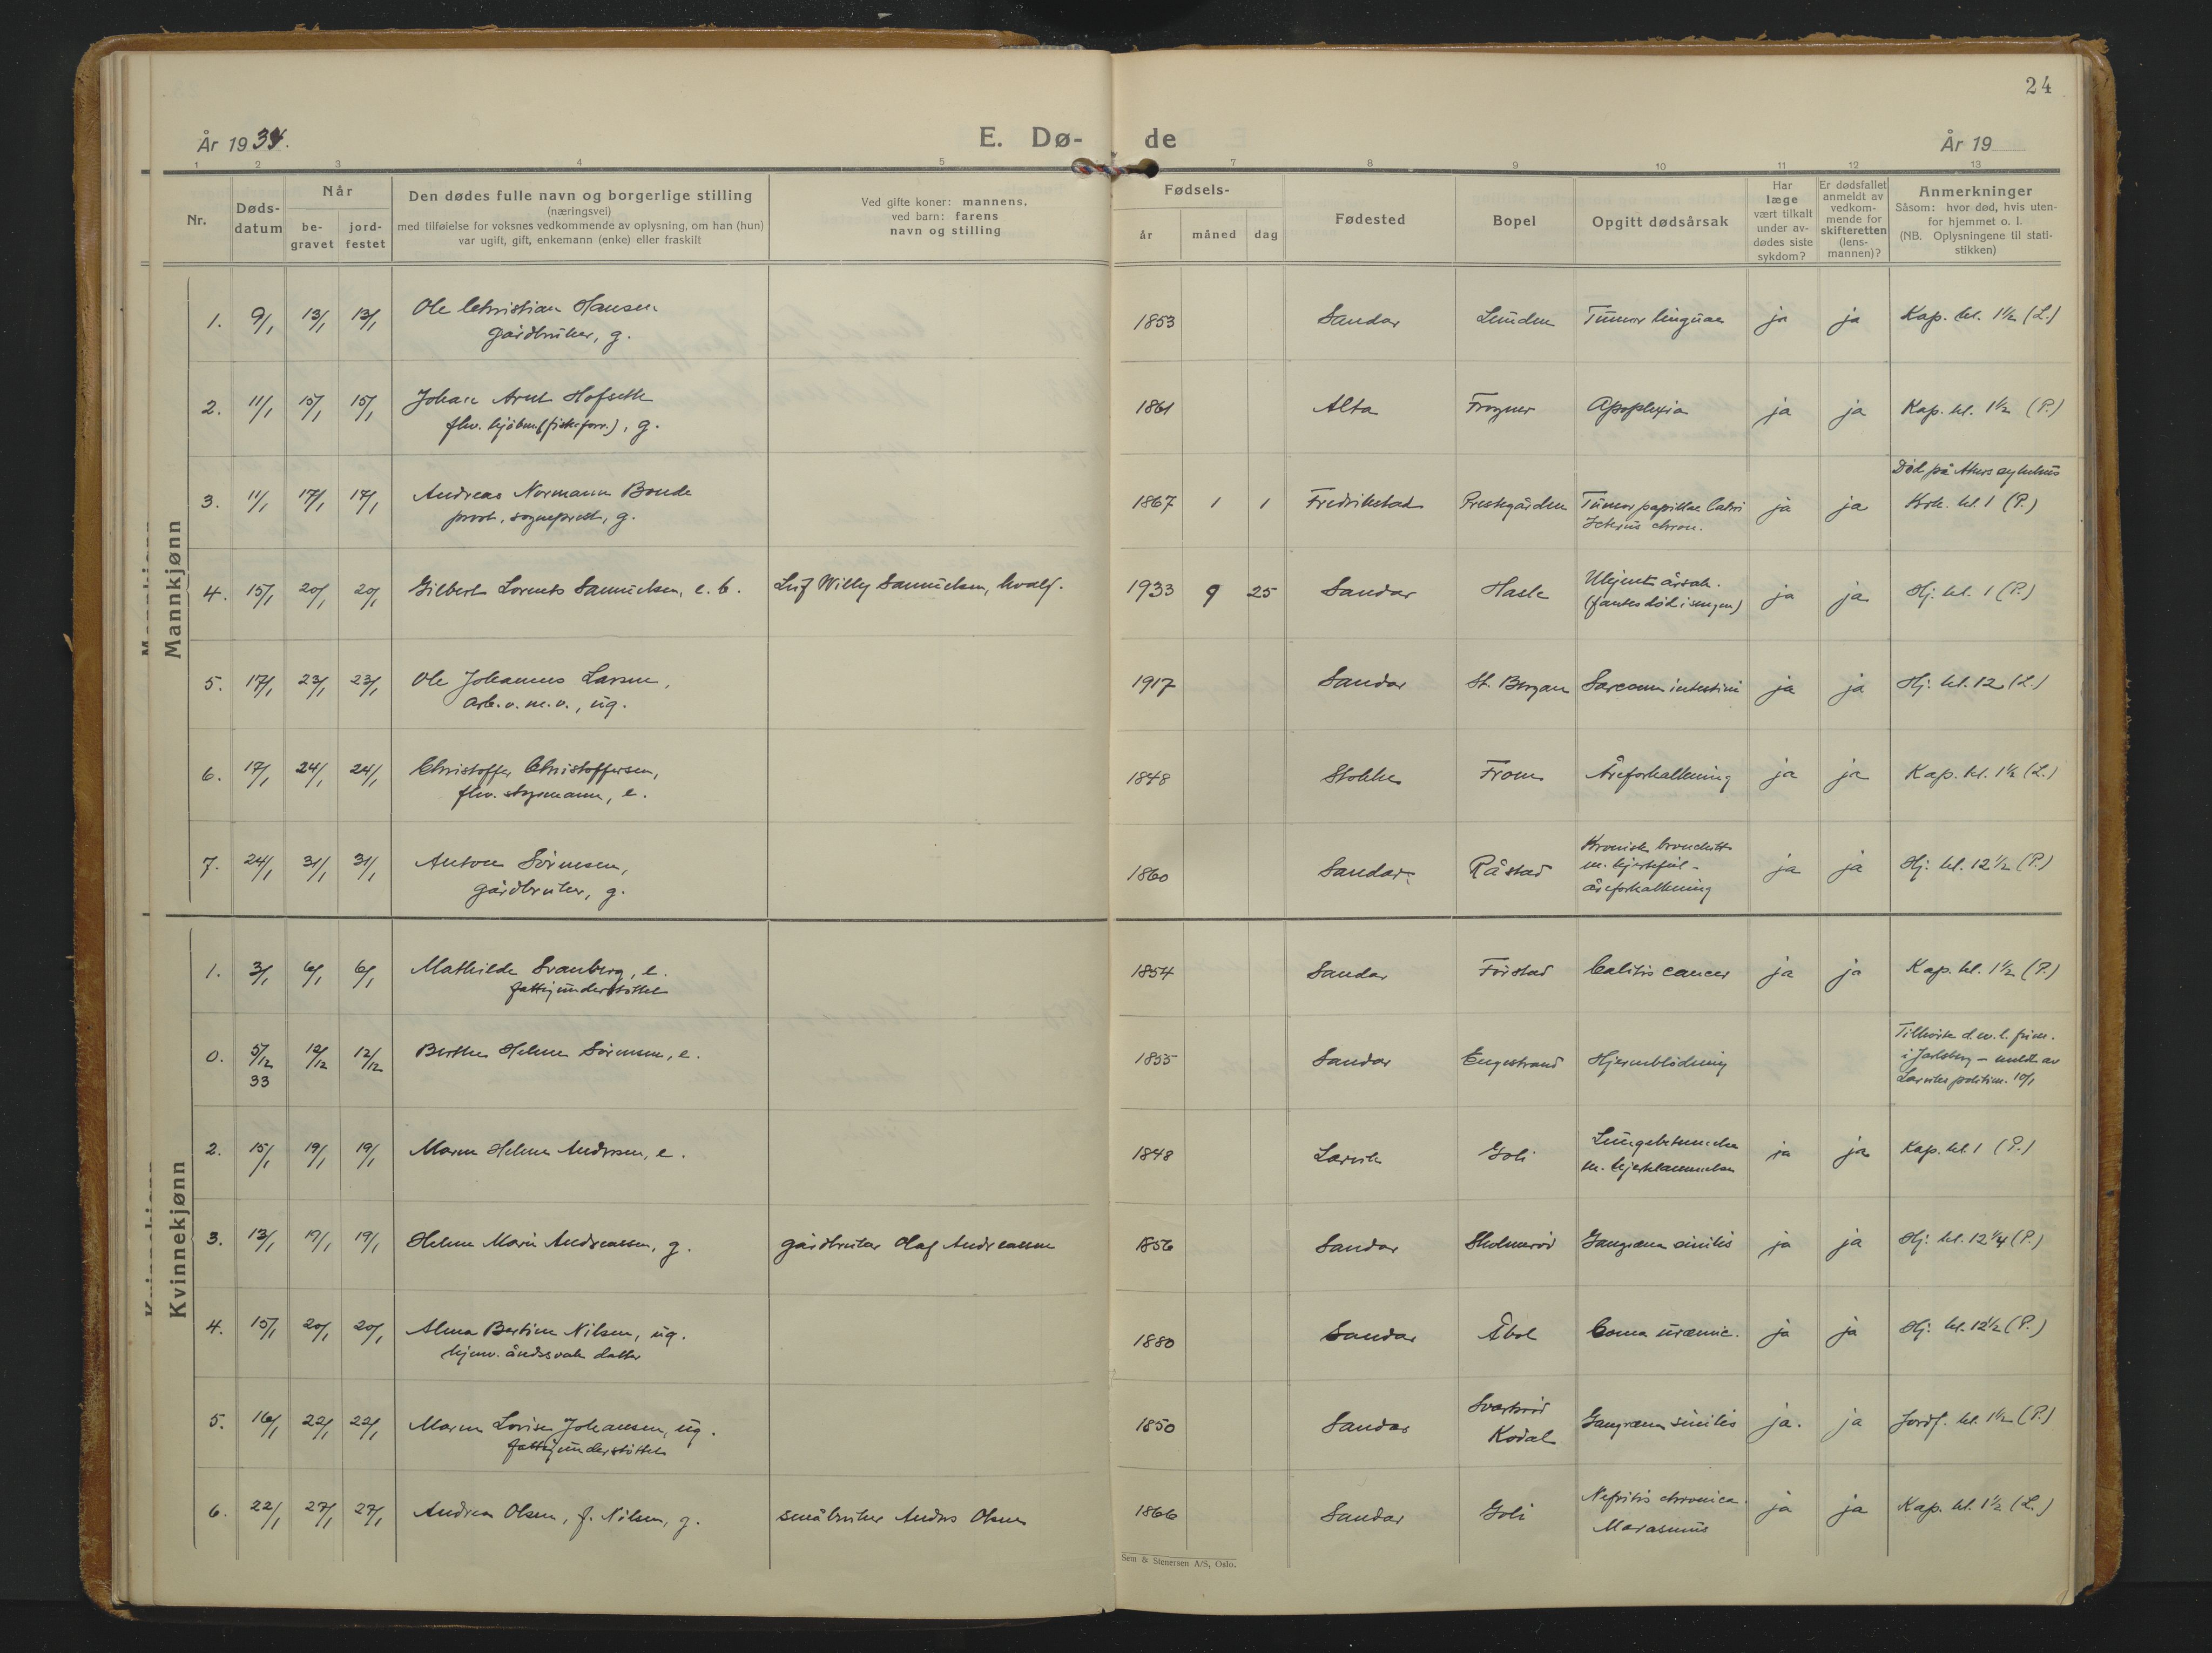 24
År 1934.
E. Dø-
de
År 19
1 2 3 4 5 7 8 9 10 11 12 13
Nr.
Døds-
datum
Når
be-
gravet
jord-
festet
Den dødes fulle navn og borgerlige stilling
(næringsvei)
med tilføielse for voksnes vedkommende av oplysning, om han (hun)
var ugift, gift, enkemann (enke) eller fraskilt
Ved gifte koner: mannens,
ved barn: farens
navn og stilling
Fødsels-
år
måned
dag
Fødested
Bopel
Opgitt dødsårsak
Har
læge
vært tilkalt
under av-
dødes siste
sykdom?
Er dødsfallet
anmeldt av
vedkom-
mende for
skifteretten
(lens-
mannen)?
Anmerkninger
Såsom: hvor død, hvis uten-
for hjemmet o. l.
(NB. Oplysningene til stati-
stikken)
Mannkjønn
1. 9/1 13/1 13/1 Ole Christian Hansen 1853 Sandar Lunden Tumor linguae ja ja Kap. kl. 1½ (L.)
gårdbruker, g.
2. 11/1 15/1 15/1 Johan Arnt Hofseth 1861 Alta Frogner Apoplexia ja ja Kap. kl. 1½ (P.)
fhv. kjøbm. (fiskeforr.), g.
Død på Akers sykehus
3. 11/1 17/1 17/1 Andreas Normann Bonde 1867 1 1 Fredrikstad Prestegården Tumor papillae Vateri ja ja Krk. kl. 1 (P.)
prost, sogneprest, g. Icterus chron.
4. 15/1 20/1 20/1 Gilbert Lorents Samuelsen, e. b. Leif Willy Samuelsen, hvalf. 1933 9 25 Sandar Hasle Ukjent årsak. ja ja Hj. kl. 1 (P.)
(fantes død i sengen)
5. 17/1 23/1 23/1 Ole Johannes Larsen, 1917 Sandar St. Bergan Sarcom intestini ja ja Hj. kl. 12 (L.)
arb. o. m. v., ug.
6. 17/1 24/1 24/1 Christoffer Christoffersen, 1848 Stokke From Åreforkalkning ja ja Kap. kl. 1½ (L.)
fhv. sagmann, e.
7. 24/1 31/1 31/1 Anton Sørensen, 1860 Sandar Råstad Kronisk bronchitt ja ja Hj. kl. 12½ (P.)
gårdbruker, g. m. hjertefeil -
åreforkalkning
Kvinnekjønn
1. 3/1 6/1 6/1 Mathilde Svanberg, e. 1854 Sandar Førstad cancer ja ja Kap. kl. 1½ (P.)
fattigunderstøttet
0. 5/12 33 12/12 12/12 Berthe Helene Sørensen, e. 1855 Sandar Engestrand Hjerneblødning
i Jarlsberg - meldt av
Larviks politim. 10/1
2. 15/1 19/1 19/1 Maren Helene Andersen, e. 1848 Larvik Goli Lungebetennelse ja ja Kap. kl. 1 (P.)
m. hjertelammelse
3. 13/1 19/1 19/1 Helene Marie Andreassen, g. gårdbruker Olaf Andreassen 1856 Sandar Skolmerød Gangræna sinilis ja ja Hj. kl. 12¼ (P.)
4. 15/1 20/1 20/1 Alma Bertine Nilsen, ug. 1880 Sandar Åbol Coma uræmic. ja ja Hj. kl. 12½ (P.)
hjemv. åndssvak datter
5. 16/1 22/1 22/1 Maren Lovise Johansen, ug. 1850 Sandar Svartsrød Gangræna sinilis ja. ja Jordf. kl. 1½ (P.)
fattigunderstøttet Kodal
6. 22/1 27/1 27/1 Andrea Olsen, f. Nilsen, g. småbruker Anders Olsen 1866 Sandar Goli Nefritis chronica. ja ja Kap. kl. 1½ (L.)
Marasmus
Sem & Stenersen A/S, Oslo.